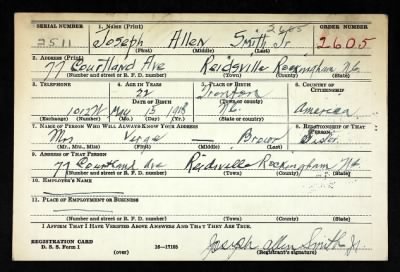 SERIAL NUMBER 1. NAME (Print) 2605 ORDER NUMBER
2511 Joseph Allen Smith Jr 2605
(First) (Middle) (Last)
2. ADDRESS (Print)
77 Courtland Ave Reidsville Rockingham N.C.
(Number and street or R. F. D. number) (Town) (County) (State)
3. TELEPHONE 4. AGE IN YEARS 5. PLACE OF BIRTH 6. COUNTRY OF
22 Trenton CITIZENSHIP
DATE OF BIRTH (Town or county)
1012W May 15 1918 N.C. American
(Exchange) (Number) (Mo.) (Day) (Yr.) (State or country)
7. NAME OF PERSON WHO WILL ALWAYS KNOW YOUR ADDRESS 8. RELATIONSHIP OF THAT
PERSON
Mrs Verge — Brown Sister
(Mr., Mrs., Miss) (First) (Middle) (Last)
9. ADDRESS OF THAT PERSON
77 Courtland Ave Reidsville Rockingham N.C.
(Number and street or R. F. D. number) (Town) (County) (State)
10. EMPLOYER'S NAME
11. PLACE OF EMPLOYMENT OR BUSINESS
(Number and street or R. F. D. number) (Town) (County) (State)
I AFFIRM THAT I HAVE VERIFIED ABOVE ANSWERS AND THAT THEY ARE TRUE.
REGISTRATION CARD
D. S. S. Form 1 (over) 16—17105 Joseph Allen Smith Jr.
(Registrant's signature)